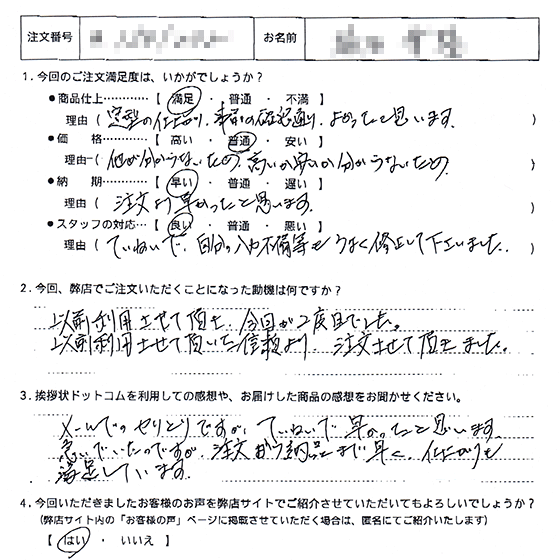 注文番号 お名前
1. 今回のご注文満足度は、いかがでしょうか？
●商品仕上…………【 満足 ・ 普通 ・ 不満 】
理由（ 定型の仕上り、事前の確認通り、よかったと思います。 ）
●価 格…………【 高い ・ 普通 ・ 安い 】
理由（ 他が分からないため、高いか安いか分からないため ）
●納 期…………【 早い ・ 普通 ・ 遅い 】
理由（ 注文より早かったと思います。 ）
●スタッフの対応…【 良い ・ 普通 ・ 悪い 】
理由（ ていねいで、自分の入力不備等もうまく修正して下さいました。 ）
2. 今回、弊店でご注文いただくことになった動機は何ですか？
以前利用させて頂き、今回が2度目でした。
以前利用させて頂いた信頼より、注文させて頂きました。
3. 挨拶状ドットコムを利用しての感想や、お届けした商品の感想をお聞かせください。
メールでのやりとりですが、ていねいで早かったと思います。
急いでいたのですが、注文から納品まで早く、仕上がりも
満足しています。
4. 今回いただきましたお客様のお声を弊店サイトでご紹介させていただいてもよろしいでしょうか？
（弊店サイト内の「お客様の声」ページに掲載させていただく場合は、匿名にてご紹介いたします）
【 はい ・ いいえ 】